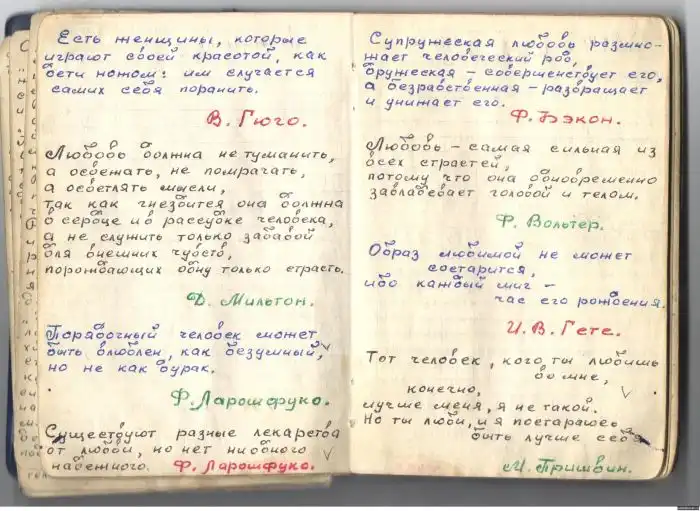 Есть женщины, которые
играют своей красотой, как
дети ножом: им случается
самих себя поранить.
В. Гюго.
Любовь должна не туманить,
а освежать, не помрачать,
а осветлять мысли,
так как гнездится она должна
в сердце и в рассудке человека,
а не служить только забавой
для внешних чувств,
порождающих одну только страсть.
Д. Мильтон.
Порядочный человек может
быть влюблен, как безумный,
но не как дурак.
Ф. Ларошфуко.
Существуют разные лекарства
от любви, но нет ни одного
надежного. Ф. Ларошфуко.
Супружеская любовь размно-
жает человеческий род,
дружеская – совершенствует его,
а безнравственная – развращает
и унижает его.
Ф. Бэкон.
Любовь – самая сильная из
всех страстей,
потому что она одновременно
завладевает головой и телом.
Ф. Вольтер.
Образ любимой не может
состарится,
ибо каждый миг –
час его рождения.
И. В. Гете.
Тот человек, кого ты любишь
во мне,
конечно,
лучше меня, я не такой.
Но ты люби, и я постараюсь
быть лучше себя
М. Пришвин.